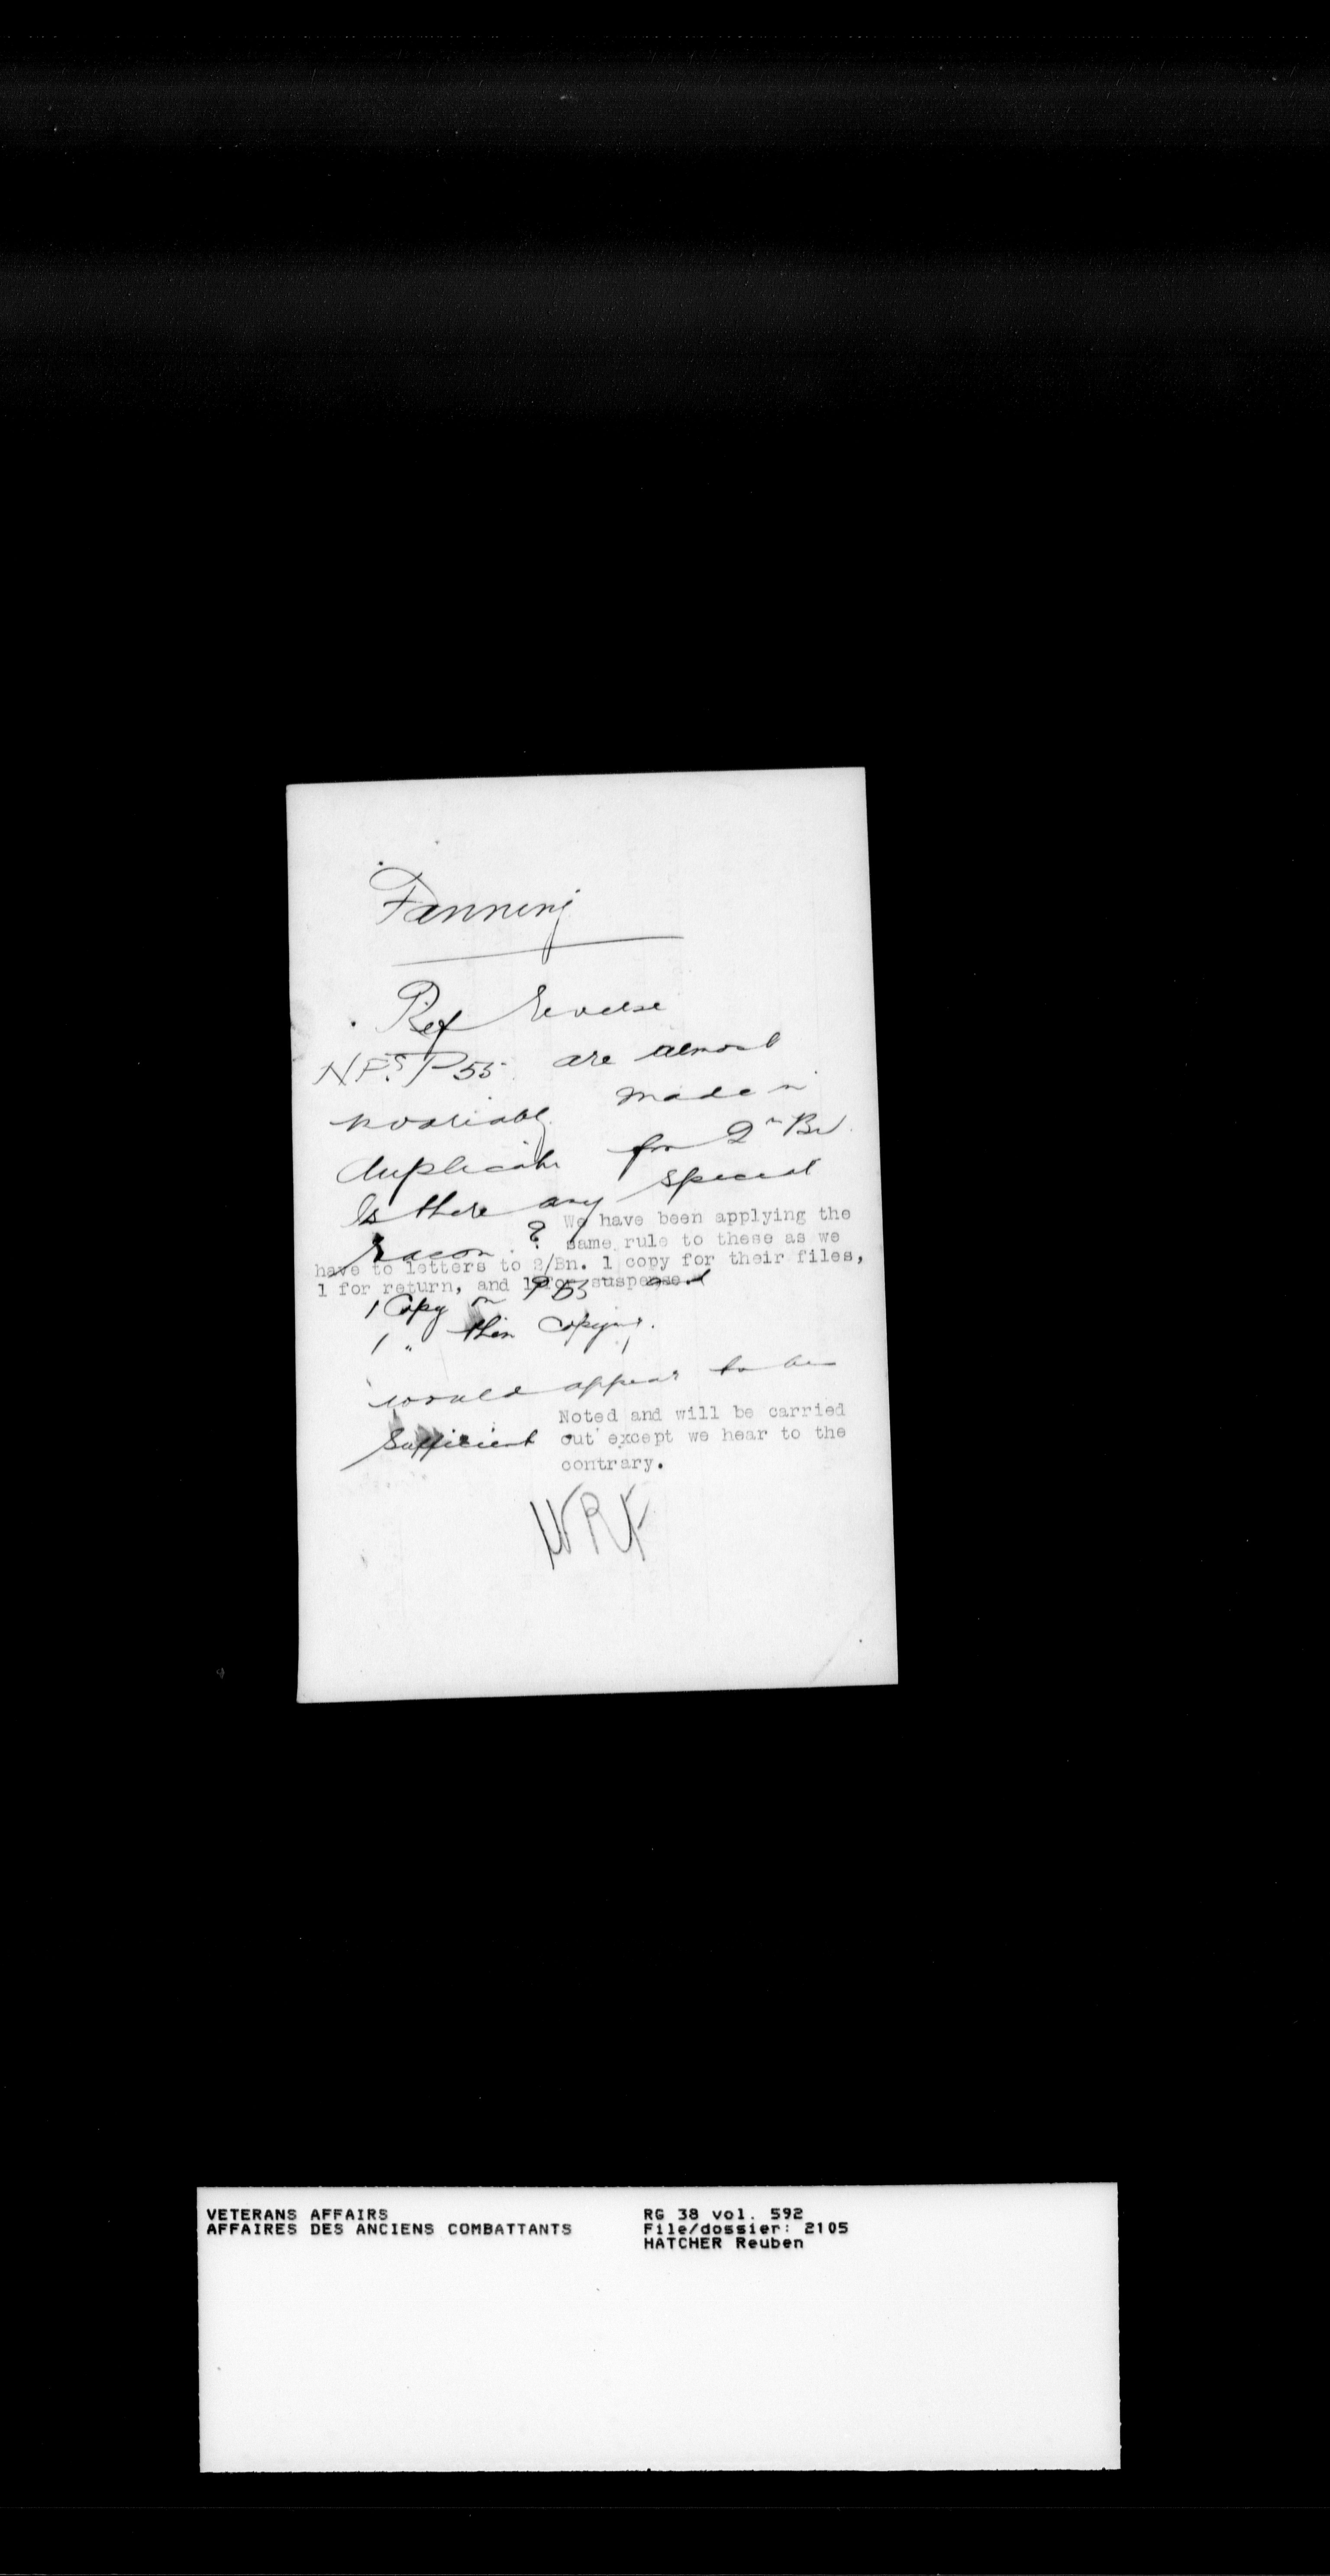 Fanning
Ref reverse
NFs P55 are almost
invariably made in
duplicate for 2nd Bn.
Is there any special
reason. ?
We have been applying the
same rule to these as we
have to letters to 2/Bn. 1 copy for their files,
1 for return, and 1 for suspense.
1 Copy on P55 and
1 " thin copying.
would appear to be
sufficient
Noted and will be carried
out except we hear to the
contrary.
WRF
VETERANS AFFAIRS
AFFAIRES DES ANCIENS COMBATTANTS
RG 38 vol. 592
File/dossier: 2105
HATCHER Reuben